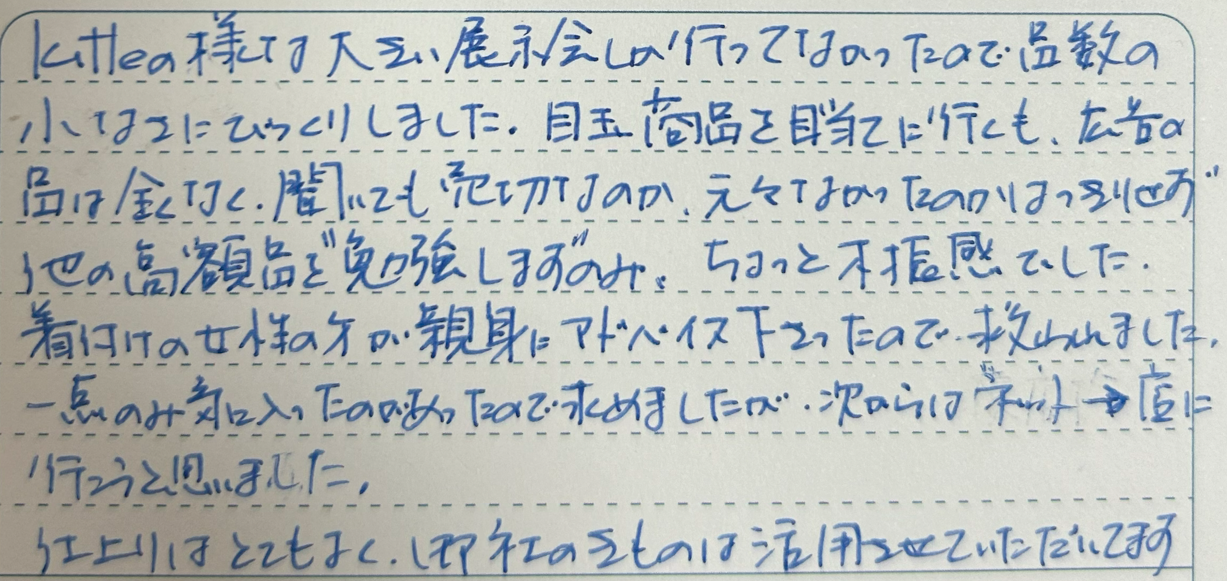 様では大きい展示会しか行ってなかったので品数の
小なさにびっくりしました。目玉商品を目当てに行くも、広告の
品は全くなく、聞いても売切なのか、元々なかったのかはっきりせず
他の高額品を"勉強します"のみ。ちょっと不振感でした。
着付けの女性の方が親身にアドバイス下さったので救われました。
一点のみ気に入ったのがあったので求めましたが、次からは ネット→店に
行こうと思いました。
仕上りはとてもよく、御社のきものは活用させていただいてます